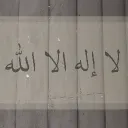 لا إله الا الله